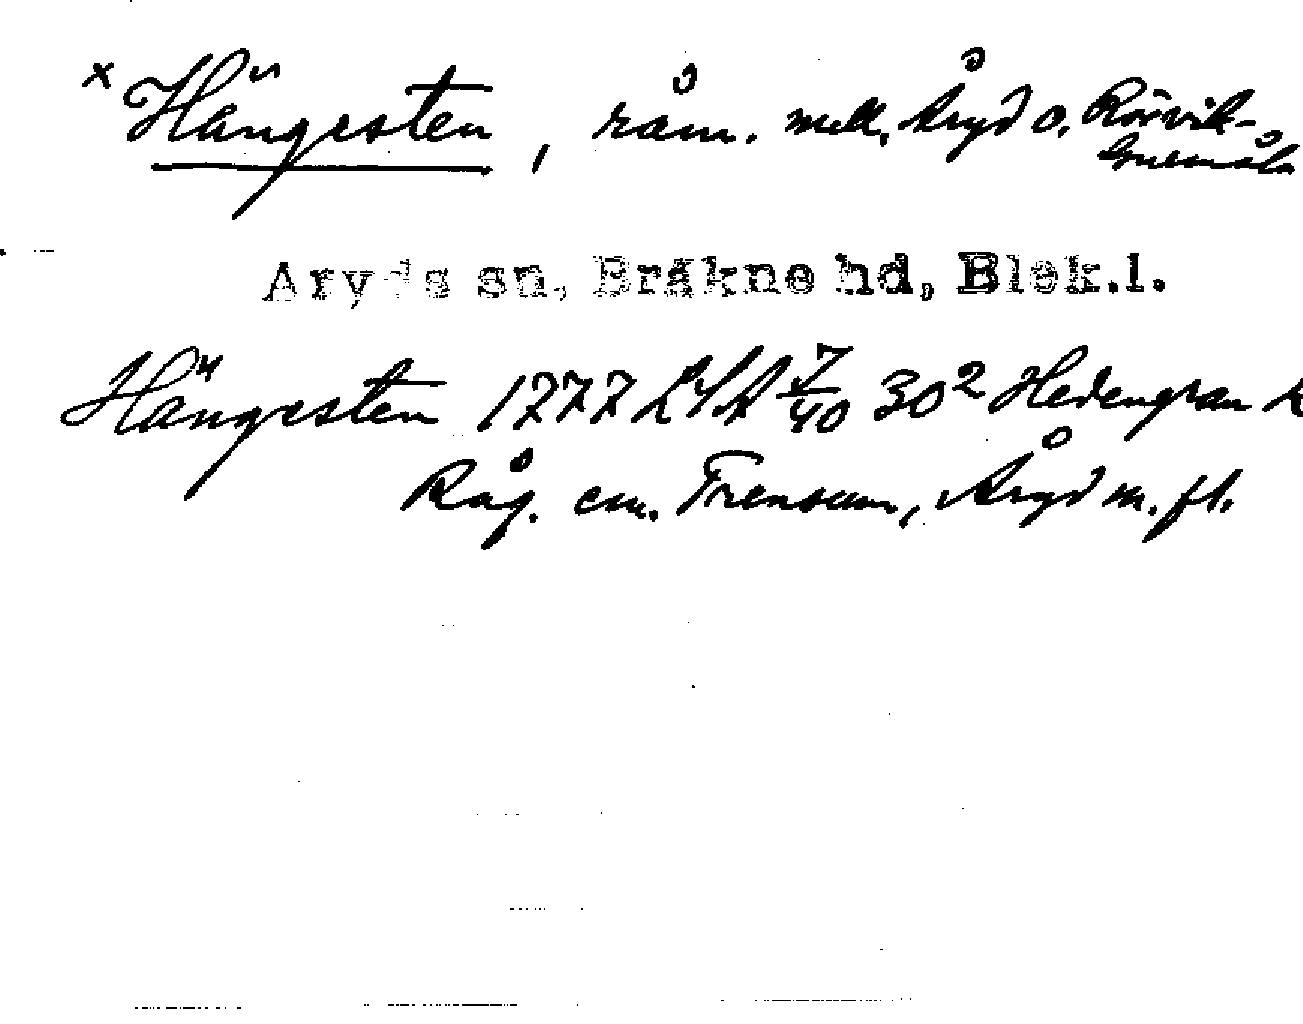 x Hängesten, råm. mell. Åryd o. Rörvik-
Åryds sn, Bräkne hd, Blek.l.
Hängesten 1777 LSA 7/40 30² Hedengran k
Råg. em. Trensum, Åryd m. fl.